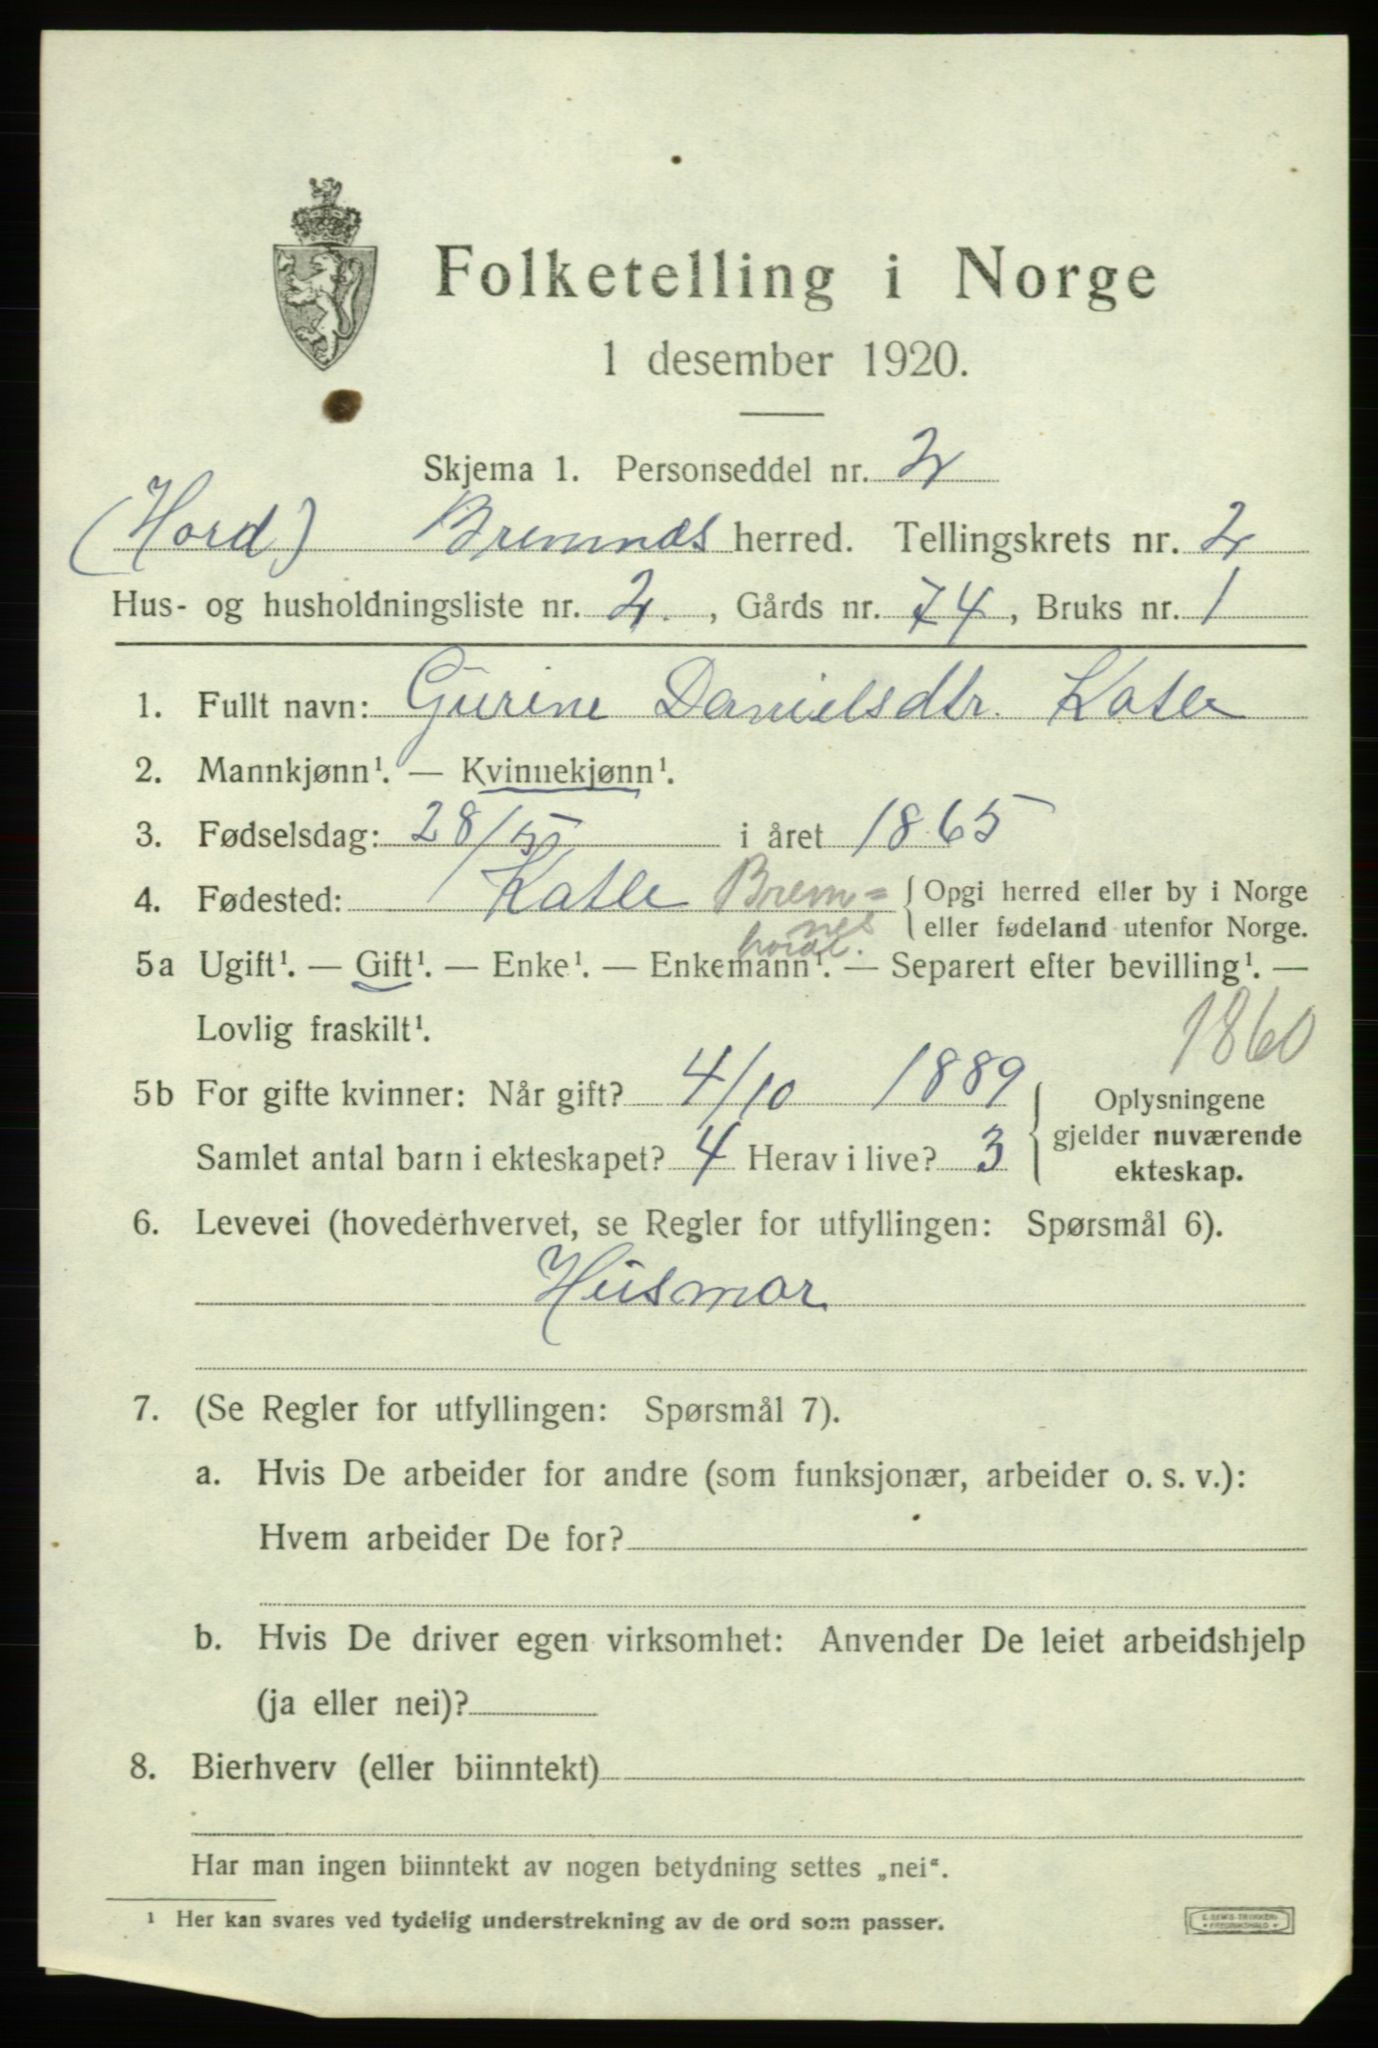 Folketelling i Norge
1 desember 1920.
Skjema 1. Personseddel nr. 2
(Hord) Bremnes herred. Tellingskrets nr. 2
Hus- og husholdningsliste nr. 2, Gårds nr. 74, Bruks nr. 1
1. Fullt navn: Gurine Danielsdtr. Katle
2. Mannkjønn¹. — Kvinnekjønn¹.
3. Fødselsdag: 28/5 i året 1865
4. Fødested: Katle Brem= { Opgi herred eller by i Norge
nes { eller fødeland utenfor Norge.
hordl.
5a Ugift¹. — Gift¹. — Enke¹. — Enkemann¹. — Separert efter bevilling¹. —
Lovlig fraskilt¹.
1860
5b For gifte kvinner: Når gift? 4/10 1889
Samlet antal barn i ekteskapet? 4 Herav i live? 3
Oplysningene
gjelder nuværende
ekteskap.
6. Levevei (hovederhvervet, se Regler for utfyllingen: Spørsmål 6).
Husmor
7. (Se Regler for utfyllingen: Spørsmål 7).
a. Hvis De arbeider for andre (som funksjonær, arbeider o. s. v.):
Hvem arbeider De for?
b. Hvis De driver egen virksomhet: Anvender De leiet arbeidshjelp
(ja eller nei)?
8. Bierhverv (eller biinntekt)
Har man ingen biinntekt av nogen betydning settes „nei“.
¹ Her kan svares ved tydelig understrekning av de ord som passer.